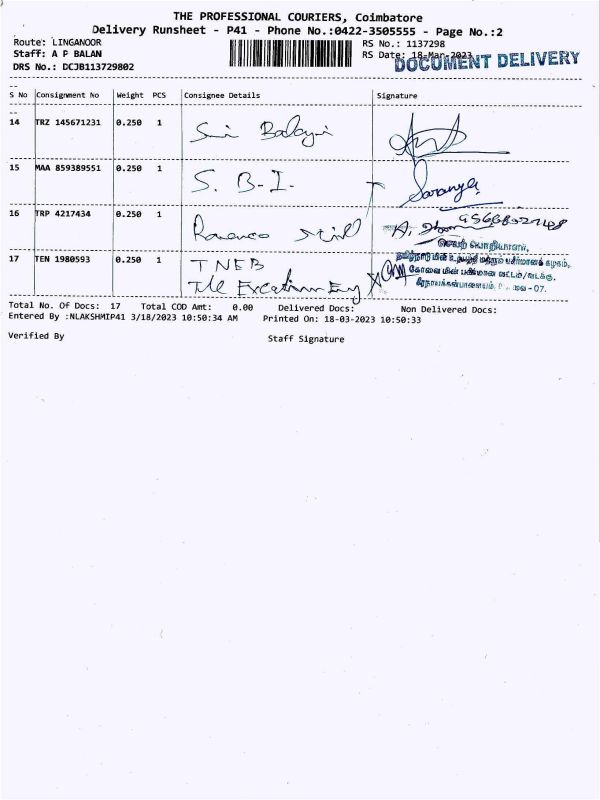 THE PROFESSIONAL COURIERS, Coimbatore
Delivery Runsheet - P41 - Phone No.:0422-3505555 - Page No.:2
Route: LINGANOOR
RS No.: 1137298
Staff: A P BALAN
RS Date: 18-Mar-2023
DRS No.: DCJB113729802
DOCUMENT DELIVERY
S No Consignment No Weight PCS Consignee Details Signature
14 TRZ 145671231 0.250 1 Sri Balaji
15 MAA 859389551 0.250 1 S. B.I. Saranya
16 TRP 4217434 0.250 1
செயற் பொறியாளர்,
17 TEN 1980593 0.250 1 TNEB
தமிழ்நாடு மின் உற்பத்தி மற்றும் பகிர்மானக் கழகம்,
The Excetinm Eng
கோவை மின் பகிர்மான வட்டம்/வடக்கு,
07.
Total No. Of Docs: 17 Total COD Amt: 0.00 Delivered Docs: Non Delivered Docs:
Entered By :NLAKSHMIP41 3/18/2023 10:50:34 AM Printed On: 18-03-2023 10:50:33
Verified By
Staff Signature